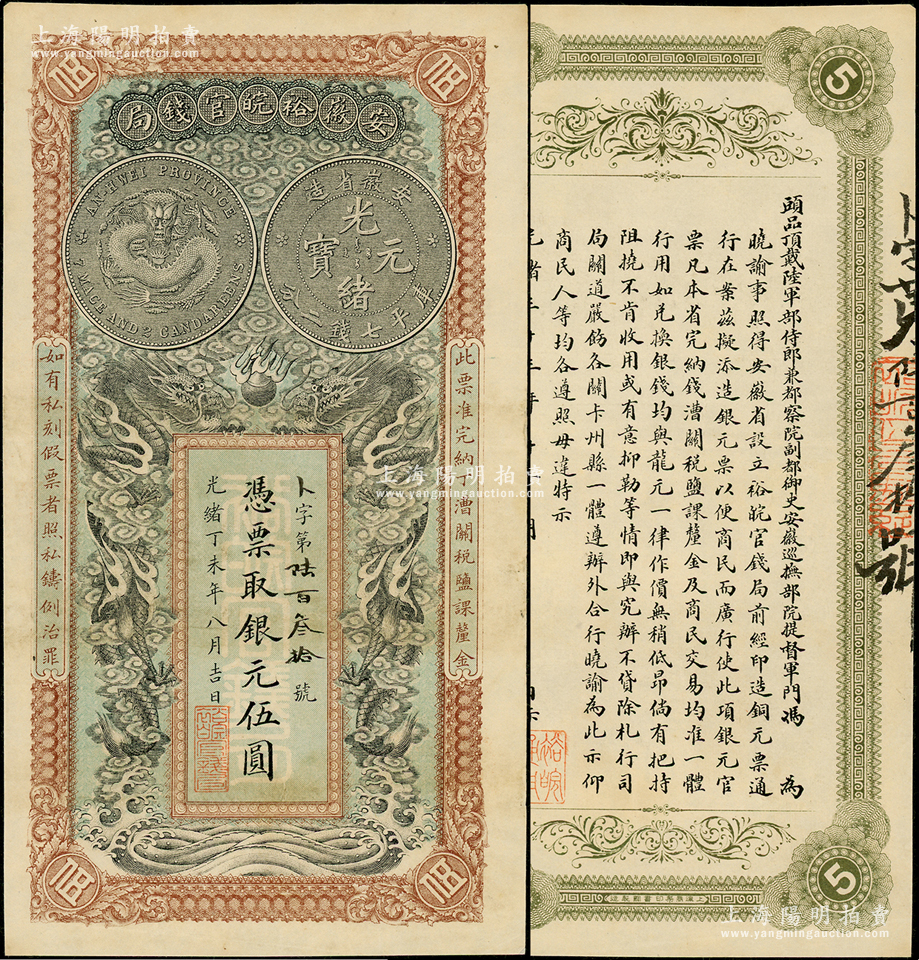 上海陽明拍賣
www.yangmingauction.com
安徽裕皖官錢局
AN-HWEI PROVINCE
7 MACE AND 2 CANDAREENS
安徽省造
光緒元寶
庫平七錢二分
此票准完納漕關稅鹽課釐金
如有私刻假票者照私鑄例治罪
卜字第陸百叁拾號
憑票取銀元伍圓
光緒丁未年八月吉日
伍
伍
伍
伍
上海陽明拍賣
www.yangmingauction.com
5
5
頭品頂戴陸軍部侍郎兼都察院副都御史安徽巡撫部院提督軍門馮 為
曉諭事照得安徽省設立裕皖官錢局前經印造銅元票通
行在案茲擬添造銀元票以便商民而廣行使此項銀元官
票凡本省完納錢漕關稅鹽課釐金及商民交易均准一體
行用如兌換銀錢均與龍元一律作價無稍低昂倘有把持
阻撓不肯收用或有意抑勒等情即與究辦不貸除札行司
局關道嚴飭各關卡州縣一體遵辦外合行曉諭為此示仰
商民人等均各遵照毋違特示
裕皖
上海陽明拍賣
www.yangmingauction.com